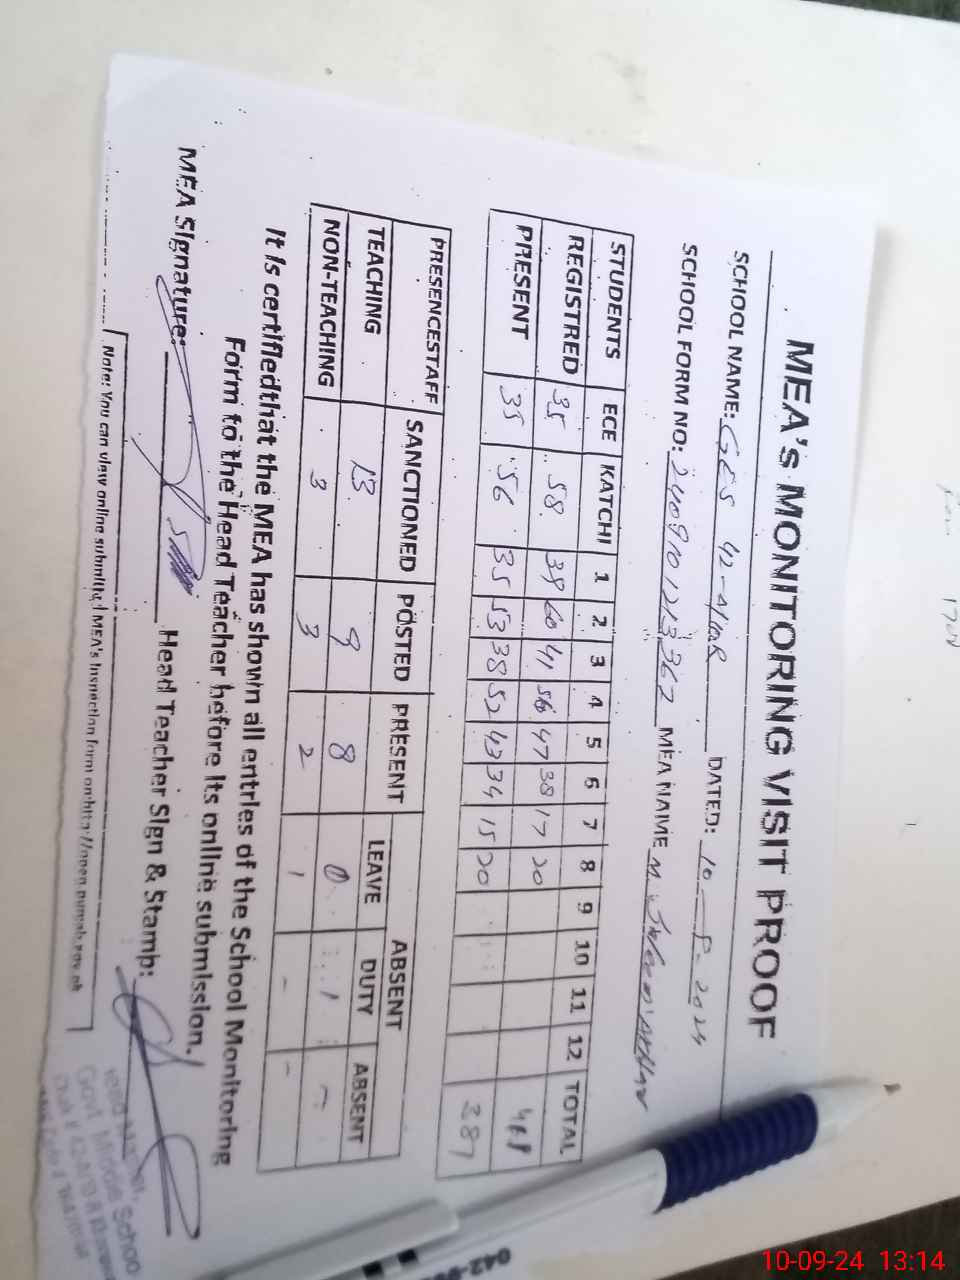 MEA'S MONITORING VISIT PROOF
SCHOOL NAME: GES 42-A/ DATED: 10- -2024
SCHOOL FORM NO: MEA NAME M
STUDENTS ECE KATCHI 1 2 3 4 5 6 7 8 9 10 11 12 TOTAL
REGISTRED 35 58 39 60 41 56 47 38 17 20
PRESENT 35 56 35 53 38 52 43 34 15 20
PRESENCESTAFF SANCTIONED POSTED PRESENT ABSENT
LEAVE DUTY ABSENT
TEACHING 13 9 8 0 1 -
NON-TEACHING 3 3 2 1 - -
It is certifiedthat the MEA has shown all entries of the School Monitoring
Form to the Head Teacher before its online submission.
MEA Signature: Head Teacher Sign & Stamp:
Note: You can view online submitted MEA's Inspection form on:http://open.punjab.gov.pk
Govt. Middle School
042-
10-09-24 13:14